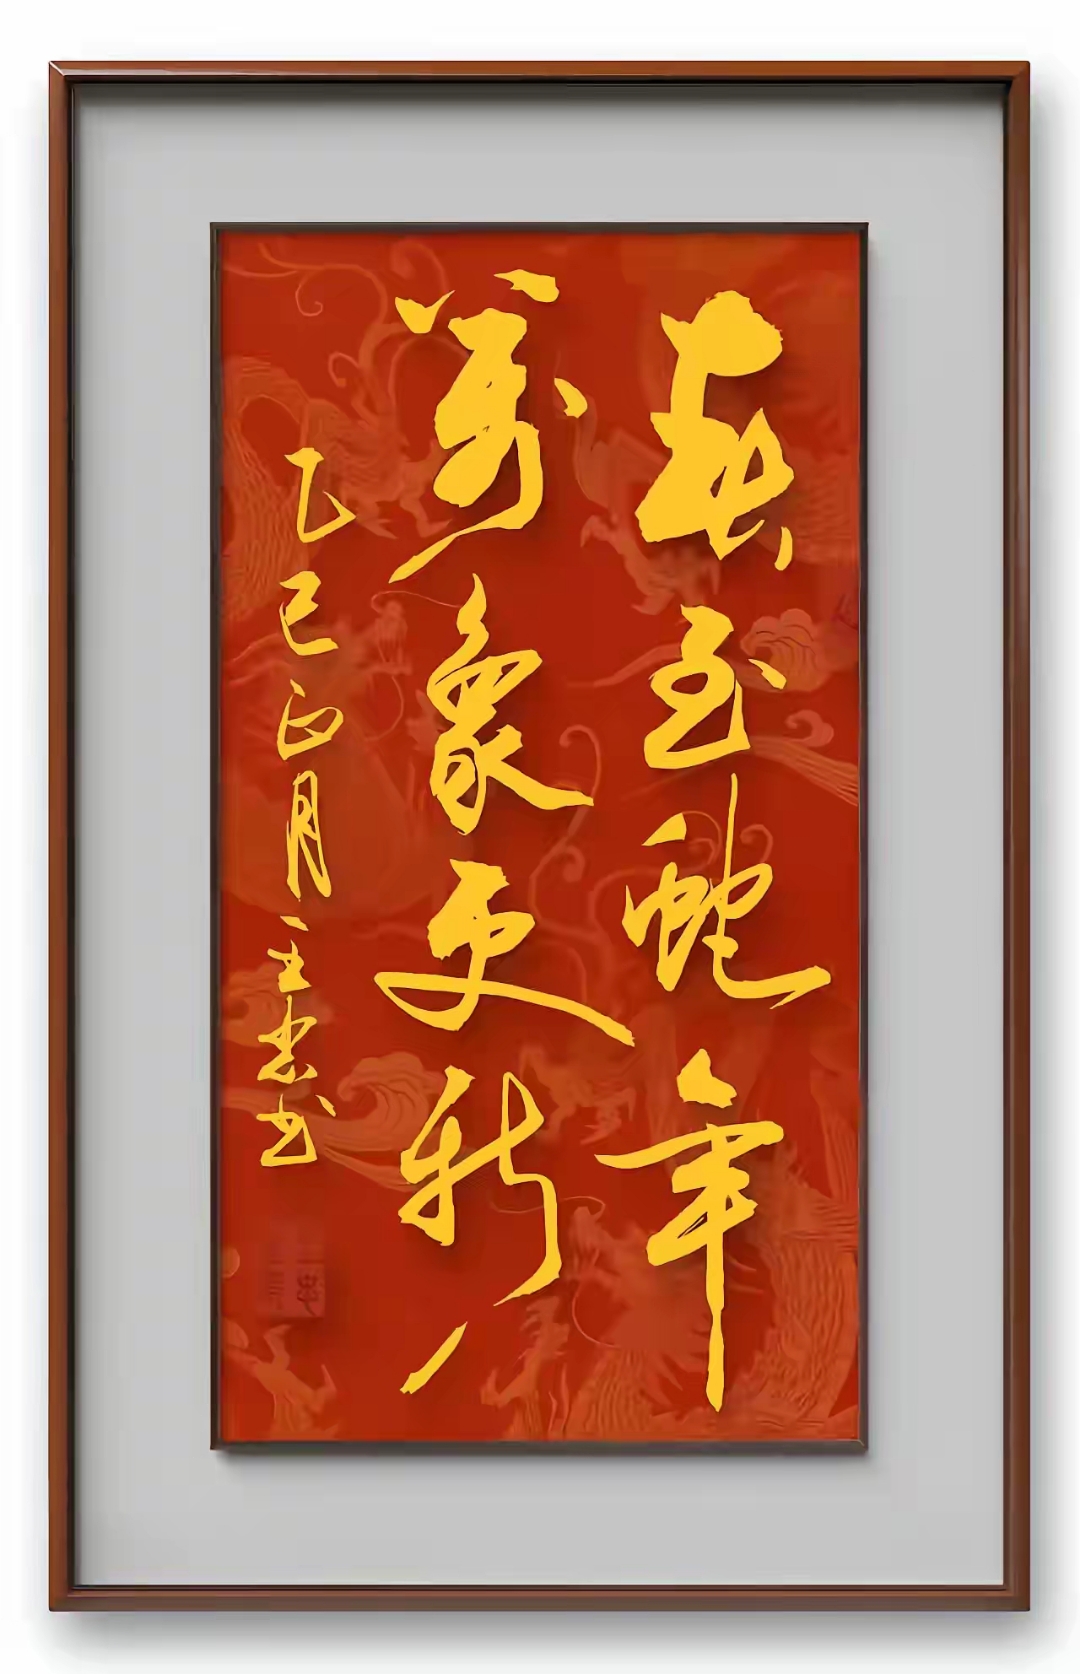 春至蛇年
萬象更新
乙巳正月王忠书